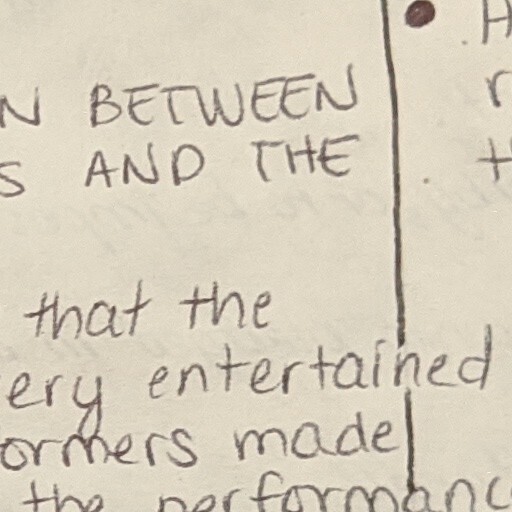 N BETWEEN
S AND THE
that the
ery entertained
ormers made
the performanc
H
r
t